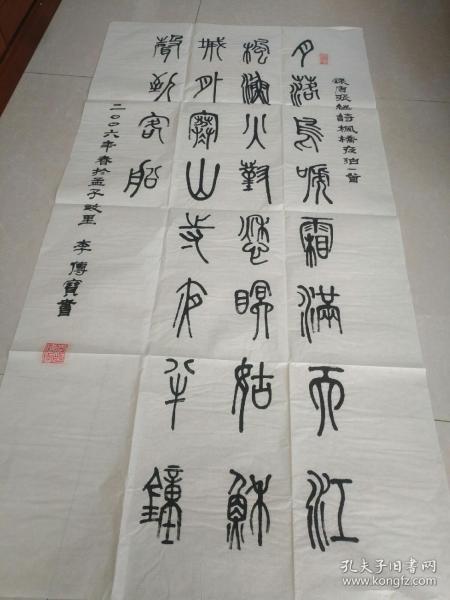 錄唐張繼詩楓橋夜泊一首
月落烏啼霜滿天江
楓漁火對愁眠姑蘇
城外寒山寺夜半鐘
聲到客船
二〇〇六年春於孟子故里 李傳寶書
孔夫子旧书网
www.kongfz.com